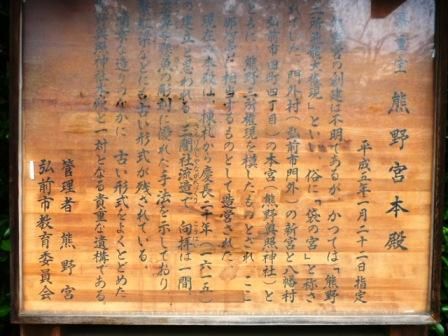 県重宝 熊野宮本殿
平成五年一月二十一日指定
熊野宮の創建は不明であるが、かつては「熊野
三所飛龍大権現」といい、俗に「袋の宮」と称さ
れていた。門外村(弘前市門外)の新宮と八幡村
(弘前市田町四丁目)の本宮(熊野奥照神社)と
ともに、熊野三所権現を模したものとされ、ここ
は那智宮に相当するものとして造営された。
現在の本殿は、棟札から慶長二十年(一六一五
)の建立と思われる。三間社流造で、向拝は一間
の彫刻に優れた手法を示しており
などにも古い形式が残されている。
簡素な造りのなかに、古い形式をよくとどめた
熊野奥照神社本殿と一対となる貴重な遺構である。
管理者 熊野宮
弘前市教育委員会